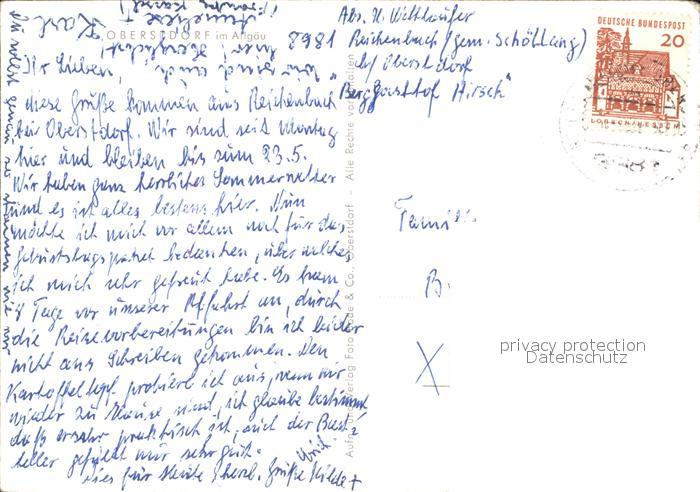 OBERSTDORF im Allgäu
Ihr Lieben,
diese Grüße kommen aus Reichenbach
bei Oberstdorf. Wir sind seit Montag
hier und bleiben bis zum 23.5.
Wir haben ganz herrliches Sommerwetter
und es ist alles bestens hier. Nun
möchte ich mich vor allem noch für das
Geburtstagspaket bedanken, über welches
ich mich sehr gefreut habe. Es kam
8 Tage vor unserer Abfahrt an, durch
die Reisevorbereitungen bin ich leider
nicht ans Schreiben gekommen. Den
Kartoffeltopf probiere ich aus, wenn wir
wieder zu Hause sind, ich glaube bestimmt
daß er sehr praktisch ist, auch der Best-
teller gefällt mir sehr gut.
Dies für Heute herzl. Grüße Hilde +
Karl
Abs. K. Welthäufer
8981 Reichenbach (gem. Schöllang)
b/ Oberstdorf
Berggasthof Hirsch"
DEUTSCHE BUNDESPOST
20
LORSCH/HESSEN
Famili
B.
X
privacy protection
Datenschutz